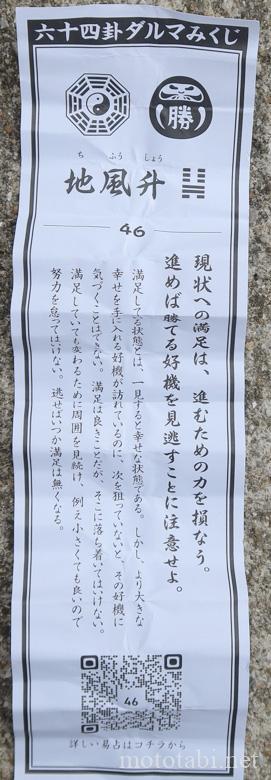 六十四卦ダルマみくじ
勝
ち ふう しょう
地風升
46
現状への満足は、進むための力を損なう。
進めば勝てる好機を見逃すことに注意せよ。
満足してる状態とは、一見すると幸せな状態である。しかし、より大きな
幸せを手に入れる好機が訪れているのに、次を狙っていないと、その好機に
気づくことはできない。満足は良きことだが、そこに落ち着いてはいけない。
満足していても変わるために周囲を見続け、例え小さくても良いので
努力を怠ってはいけない。逃せばいつか満足は無くなる。
46
詳しい易占はコチラから
mototabi.net